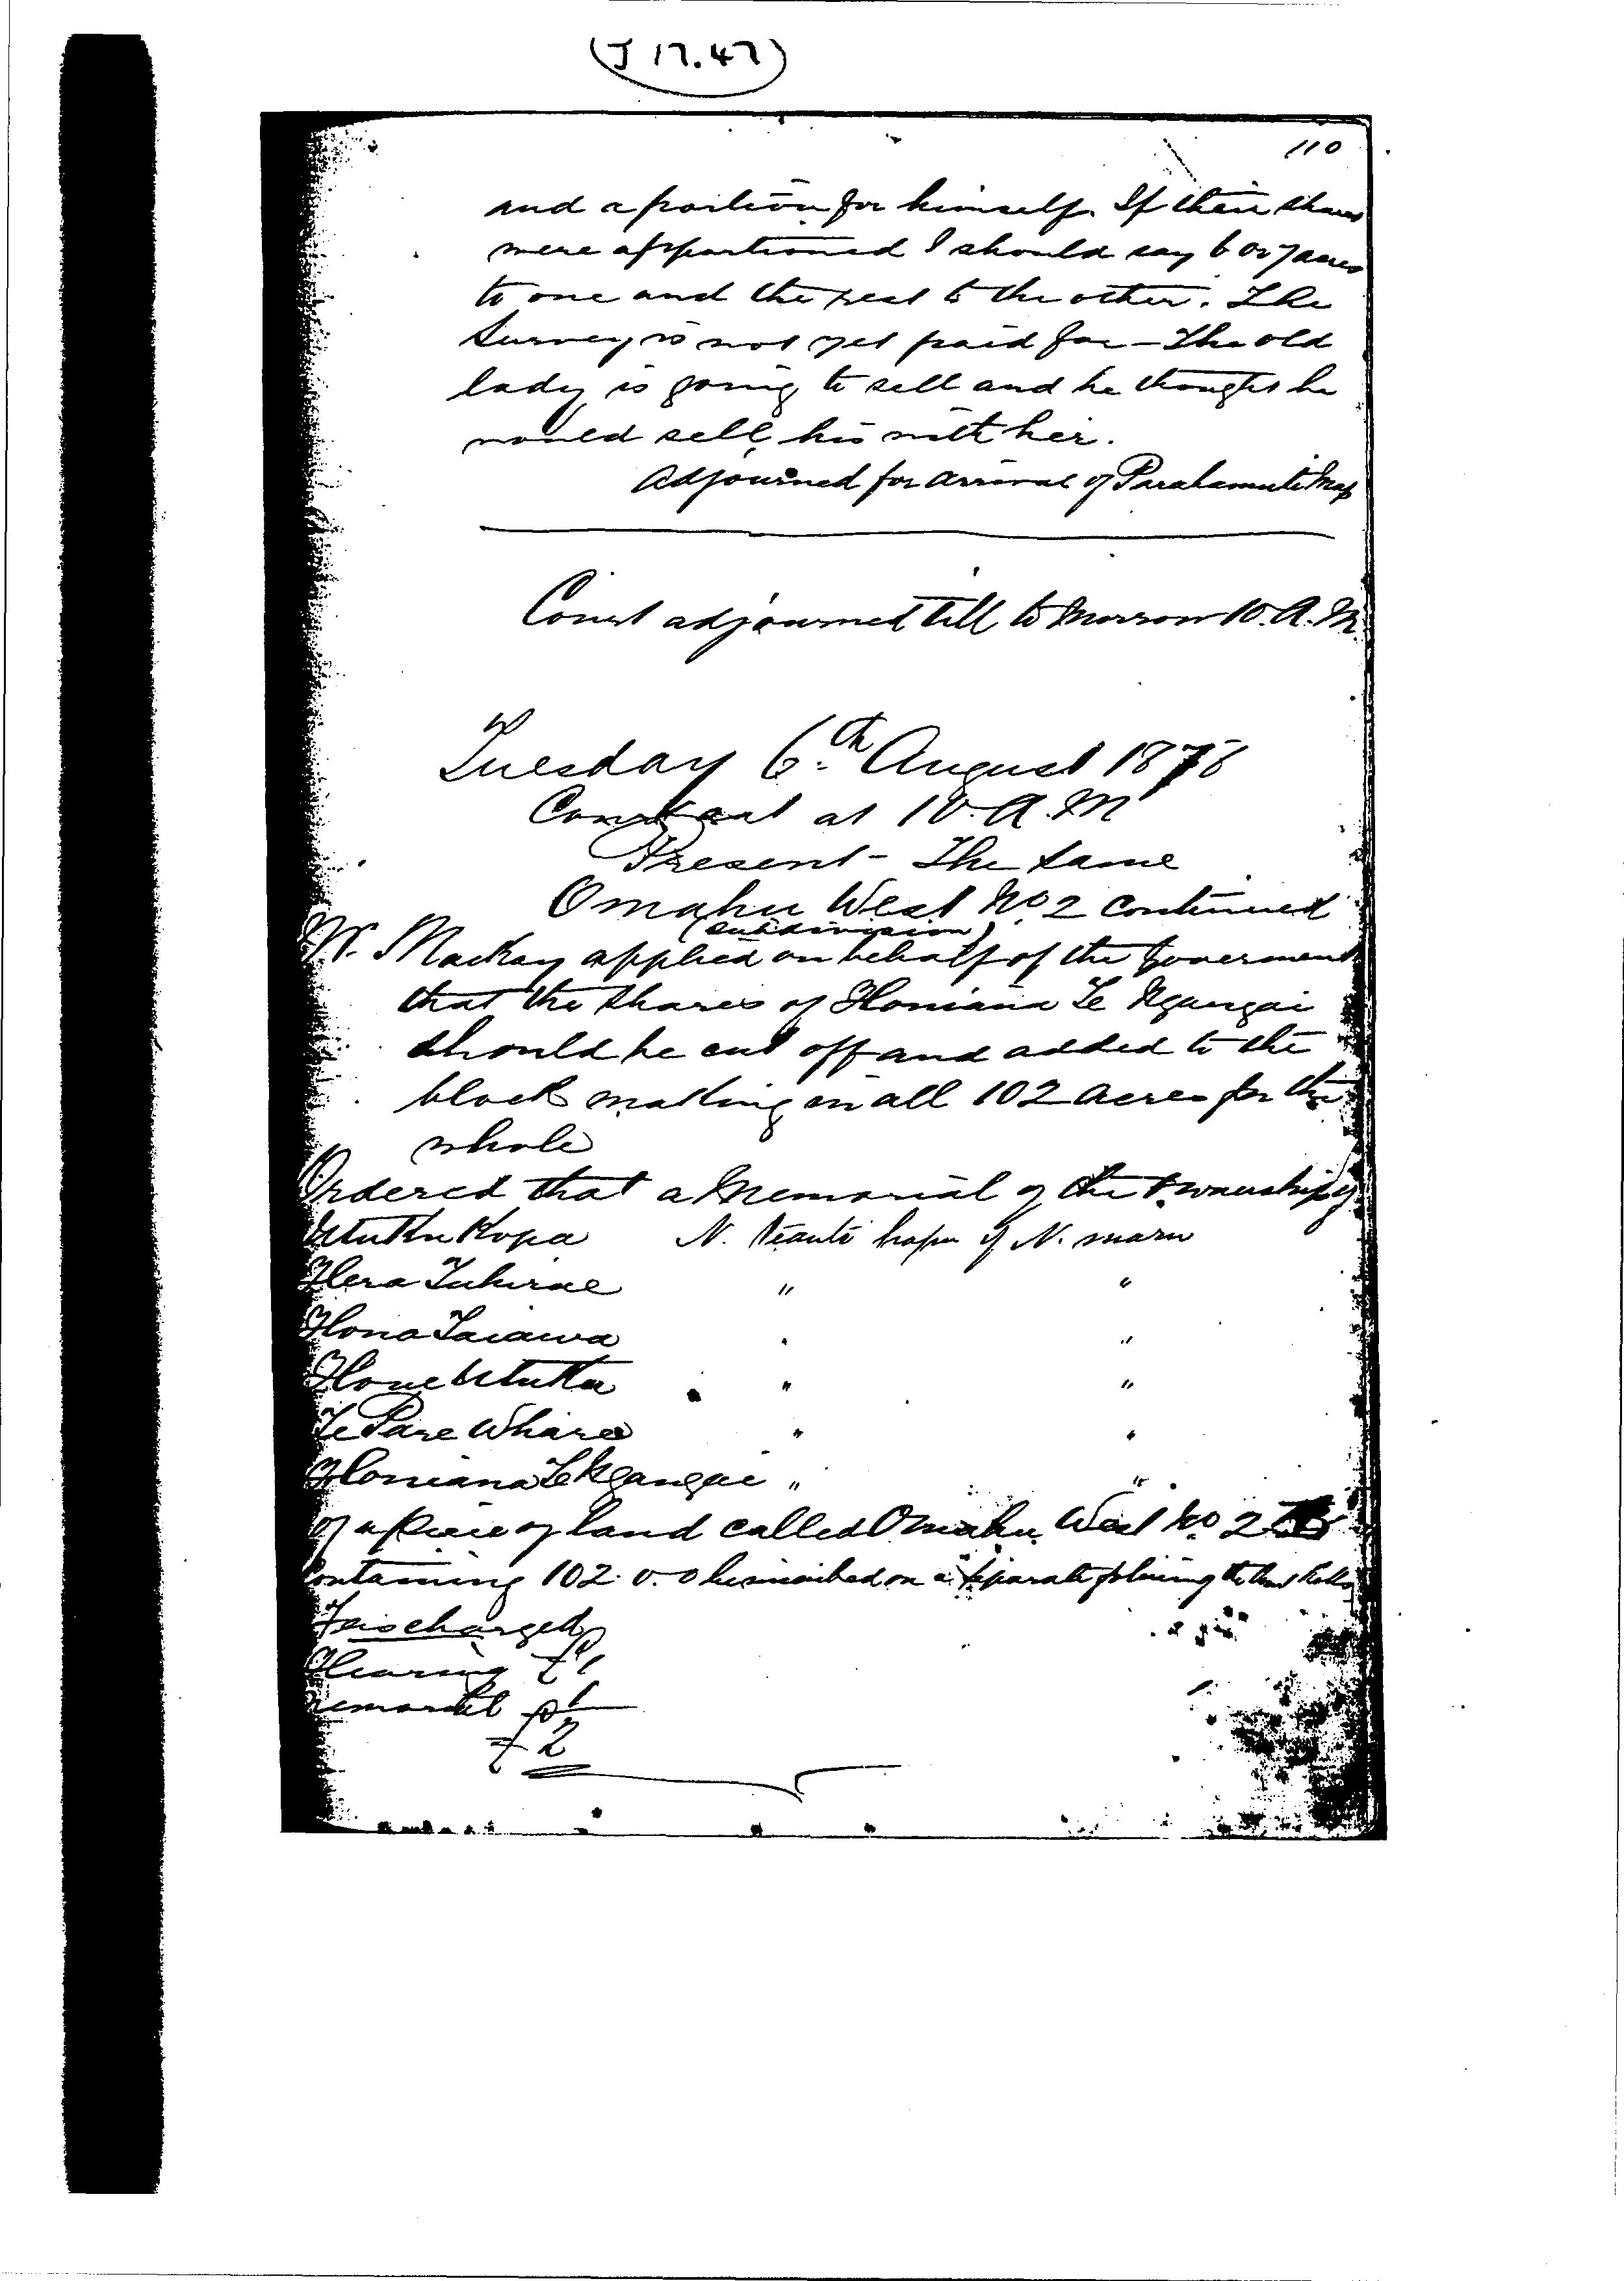 (J 17.47)
110
and a portion for himself. If their shares
were apportioned I should say 6 or 7 acres
to one and the rest to the other. The
Survey is not yet paid for - The old
lady is going to sell and he thought he
would sell his with her.
Adjourned for arrival of Map
Court adjourned till to morrow 10. A. M.
Tuesday 6th August 1878
Court at 10. A. M
Present - The same
Omahu West No 2 continued
(Subdivision)
Mackay applied on behalf of the Goverment
that the shares of Honiana Te Ngangai
should be cut off and added to the
block making in all 102 acres for the
whole
Ordered that a Memorial of the Ownership of
Utuku Kopa N. hapu of N. maru
Hera " "
Hona Taiawa " "
Hone Utuku " "
Te Pare Whare " "
Honiana Te Ngangai " "
of a piece of land called Omahu West No 2
Containing 102. 0. 0 be inscribed on a separate of the Court Rolls
Fees charged
Hearing £1
Memorial £1
£2